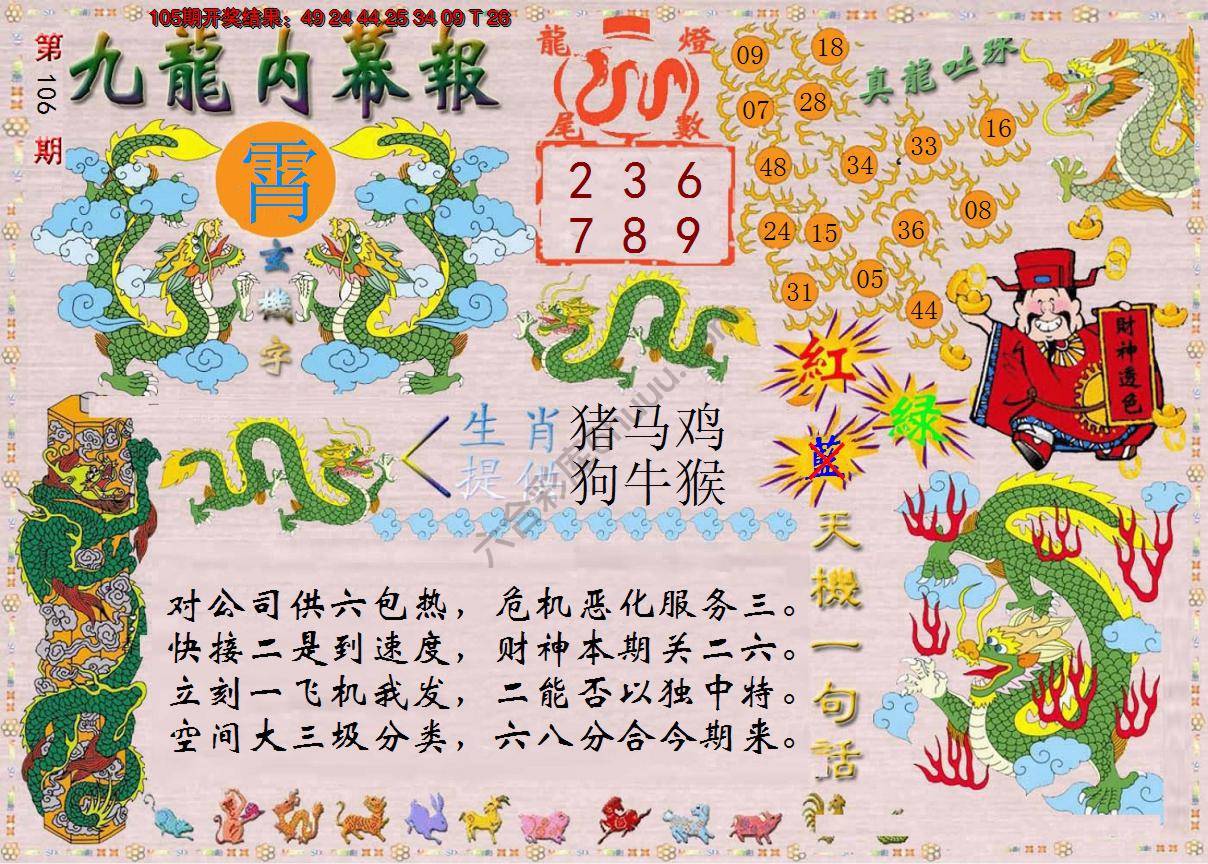 105期开奖结果：49 24 44 25 34 09 T 26
第106期
九龍内幕報
霄
玄機字
龍燈
尾數
2 3 6
7 8 9
真龍吐珠
09 18
07 28
48 34 33 16
24 15 36 08
31 05 44
財神透色
紅
綠
藍
生肖 猪马鸡
提供 狗牛猴
天機一句話
对公司供六包热，危机恶化服务三。
快接二是到速度，财神本期关二六。
立刻一飞机我发，二能否以独中特。
空间大三圾分类，六八分合今期来。